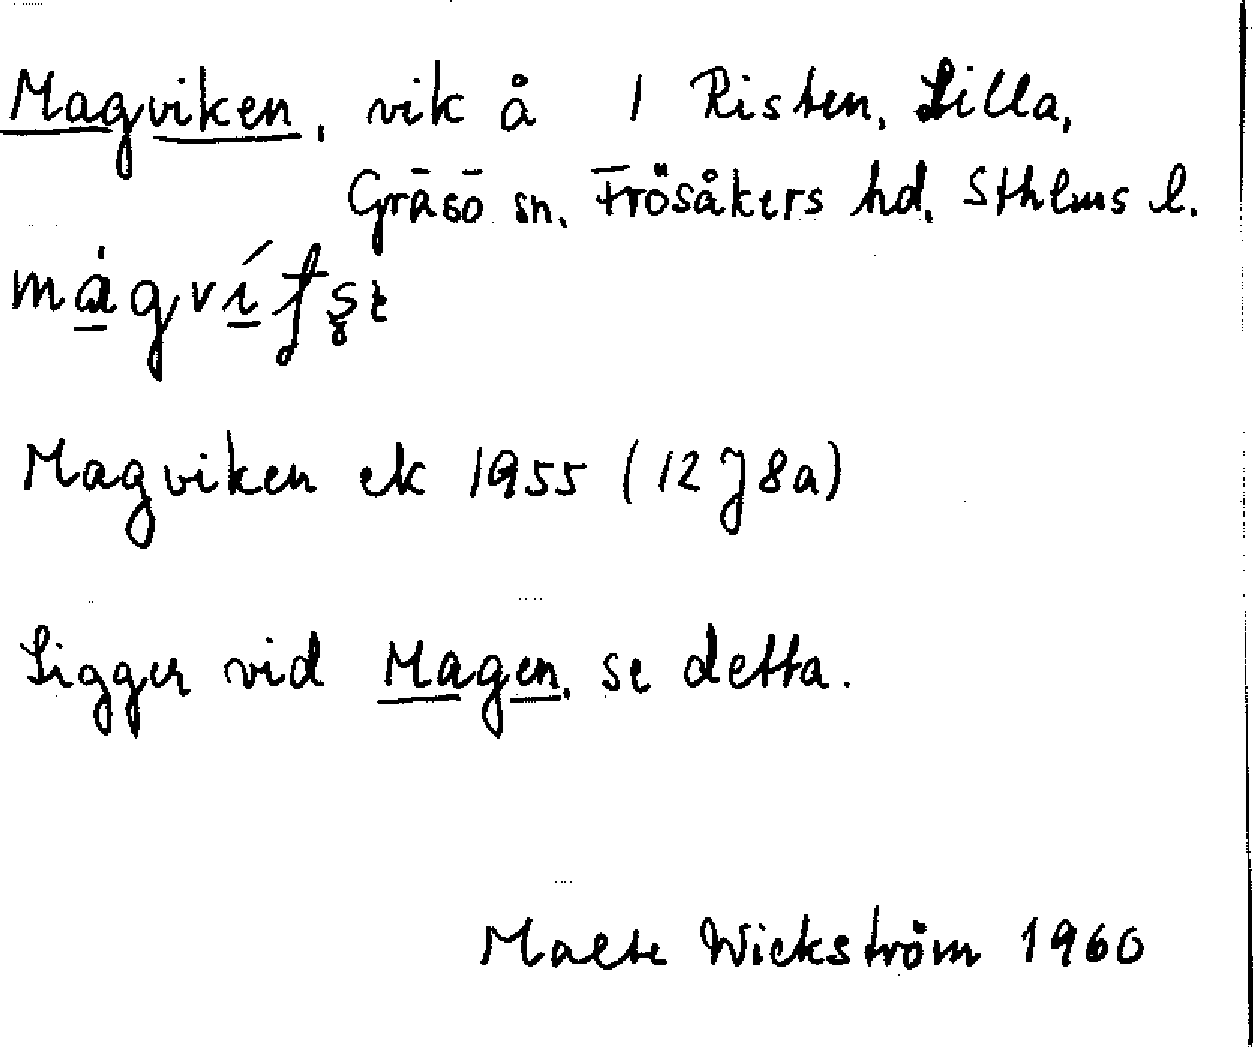 Magviken, vik å 1 Risten, Lilla,
Gräsö sn, Frösåkers hd, Sthlms l.
Magviken ek 1955 (12J8a)
Ligger vid Magen, se detta.
Malte Wickström 1960